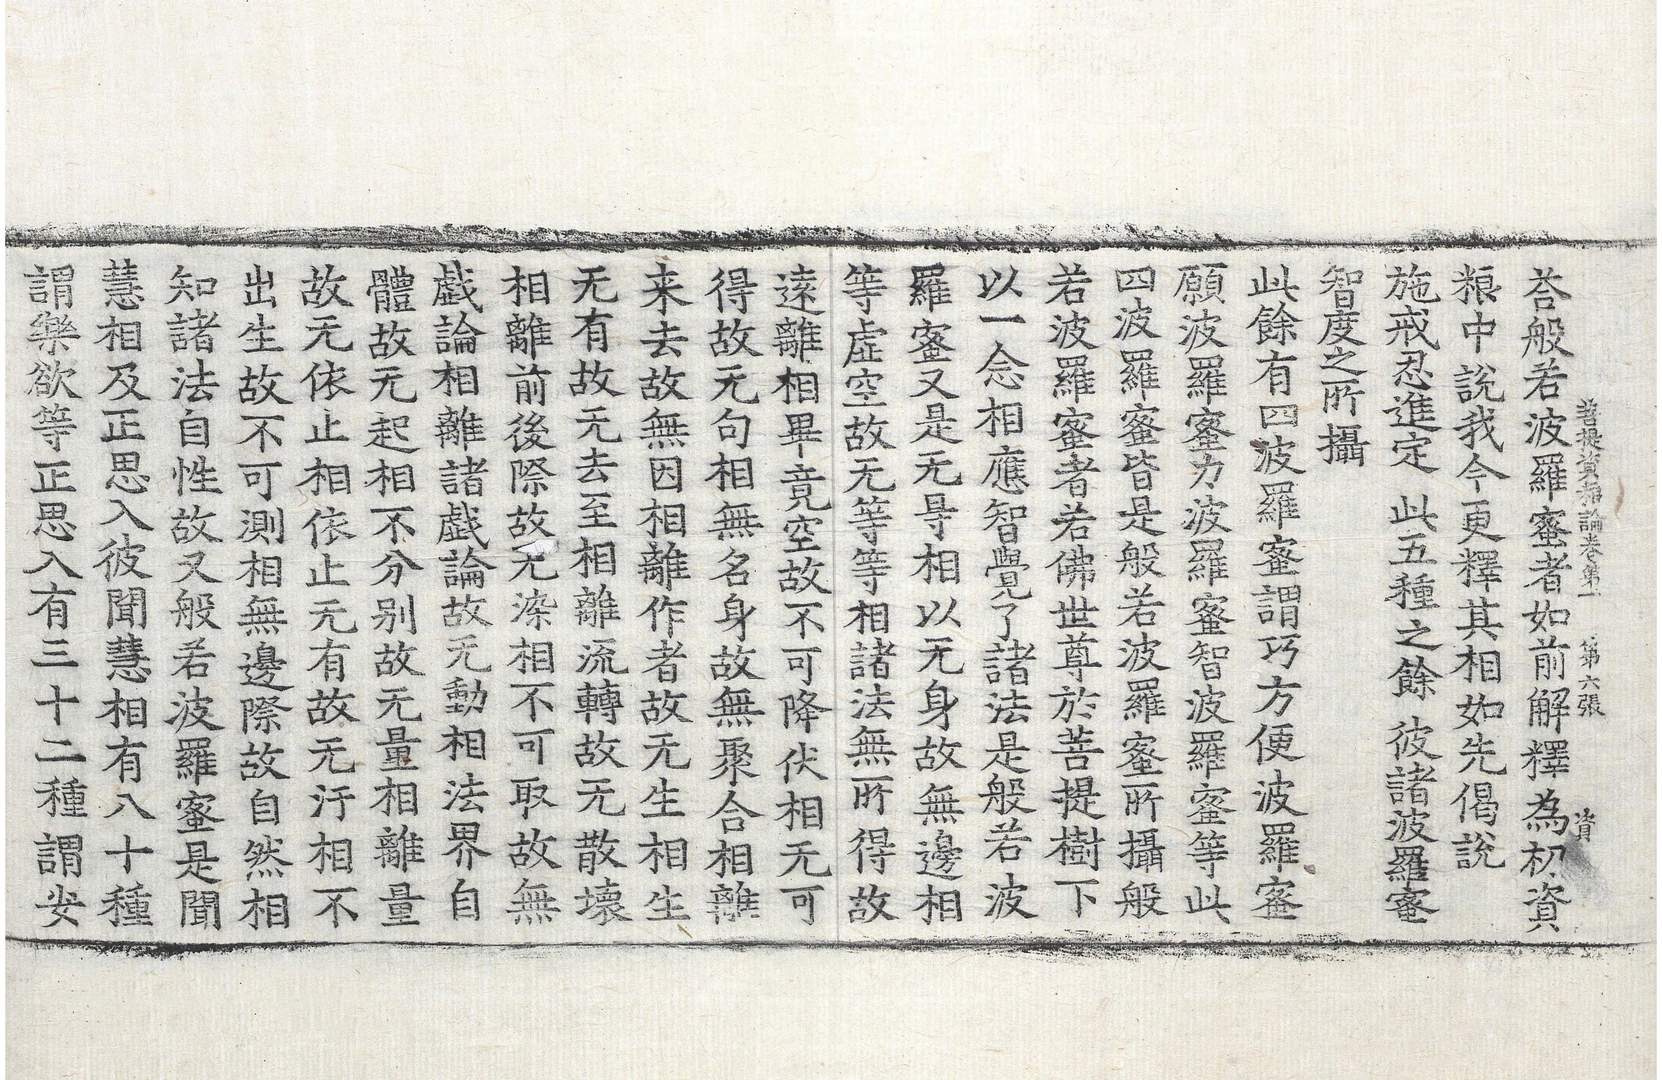 菩提資粮論卷第一 第六張 資
荅般若波羅蜜者如前解釋為初資
粮中說我今更釋其相如先偈說
施戒忍進定 此五種之餘 彼諸波羅蜜
智度之所攝
此餘有四波羅蜜謂巧方便波羅蜜
願波羅蜜力波羅蜜智波羅蜜等此
四波羅蜜皆是般若波羅蜜所攝般
若波羅蜜者若佛世尊於菩提樹下
以一念相應智覺了諸法是般若波
羅蜜又是无㝵相以无身故無邊相
等虛空故无等等相諸法無所得故
遠離相畢竟空故不可降伏相无可
得故无句相無名身故無聚合相離
来去故無因相離作者故无生相生
无有故无去至相離流轉故无散壞
相離前後際故无染相不可取故無
戲論相離諸戲論故无動相法界自
體故无起相不分別故无量相離量
故无依止相依止无有故无汙相不
出生故不可測相無邊際故自然相
知諸法自性故又般若波羅蜜是聞
慧相及正思入彼聞慧相有八十種
謂樂欲等正思入有三十二種謂安